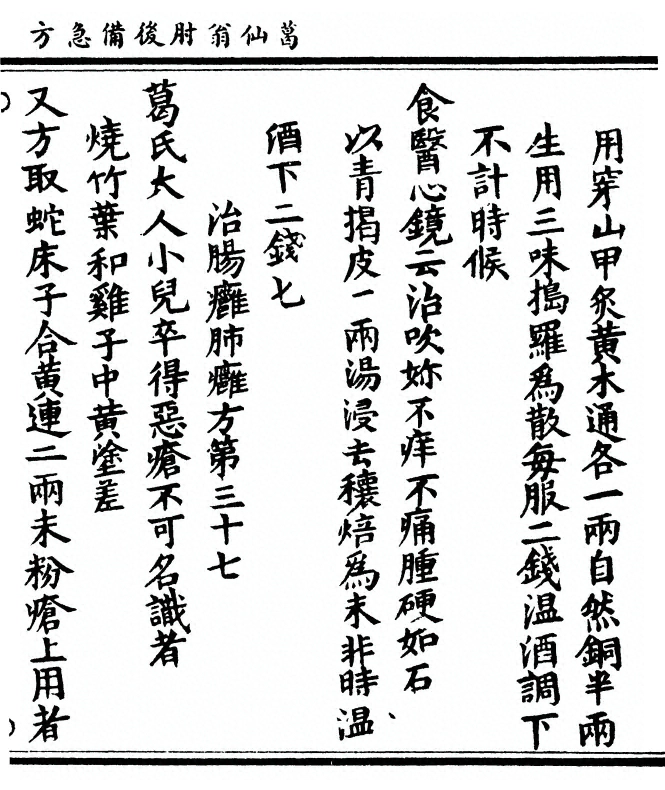 葛仙翁肘後備急方
用穿山甲炙黄木通各一兩自然銅半兩
生用三味搗羅爲散每服二錢温酒調下
不計時候
食醫心鏡云治吹妳不痒不痛腫硬如石
以青揭皮一兩湯浸去穰焙爲末非時温
酒下二錢七
治腸癰肺癰方第三十七
葛氏大人小兒卒得惡瘡不可名識者
燒竹葉和雞子中黄塗差
又方取蛇床子合黄連二兩末粉瘡上用者